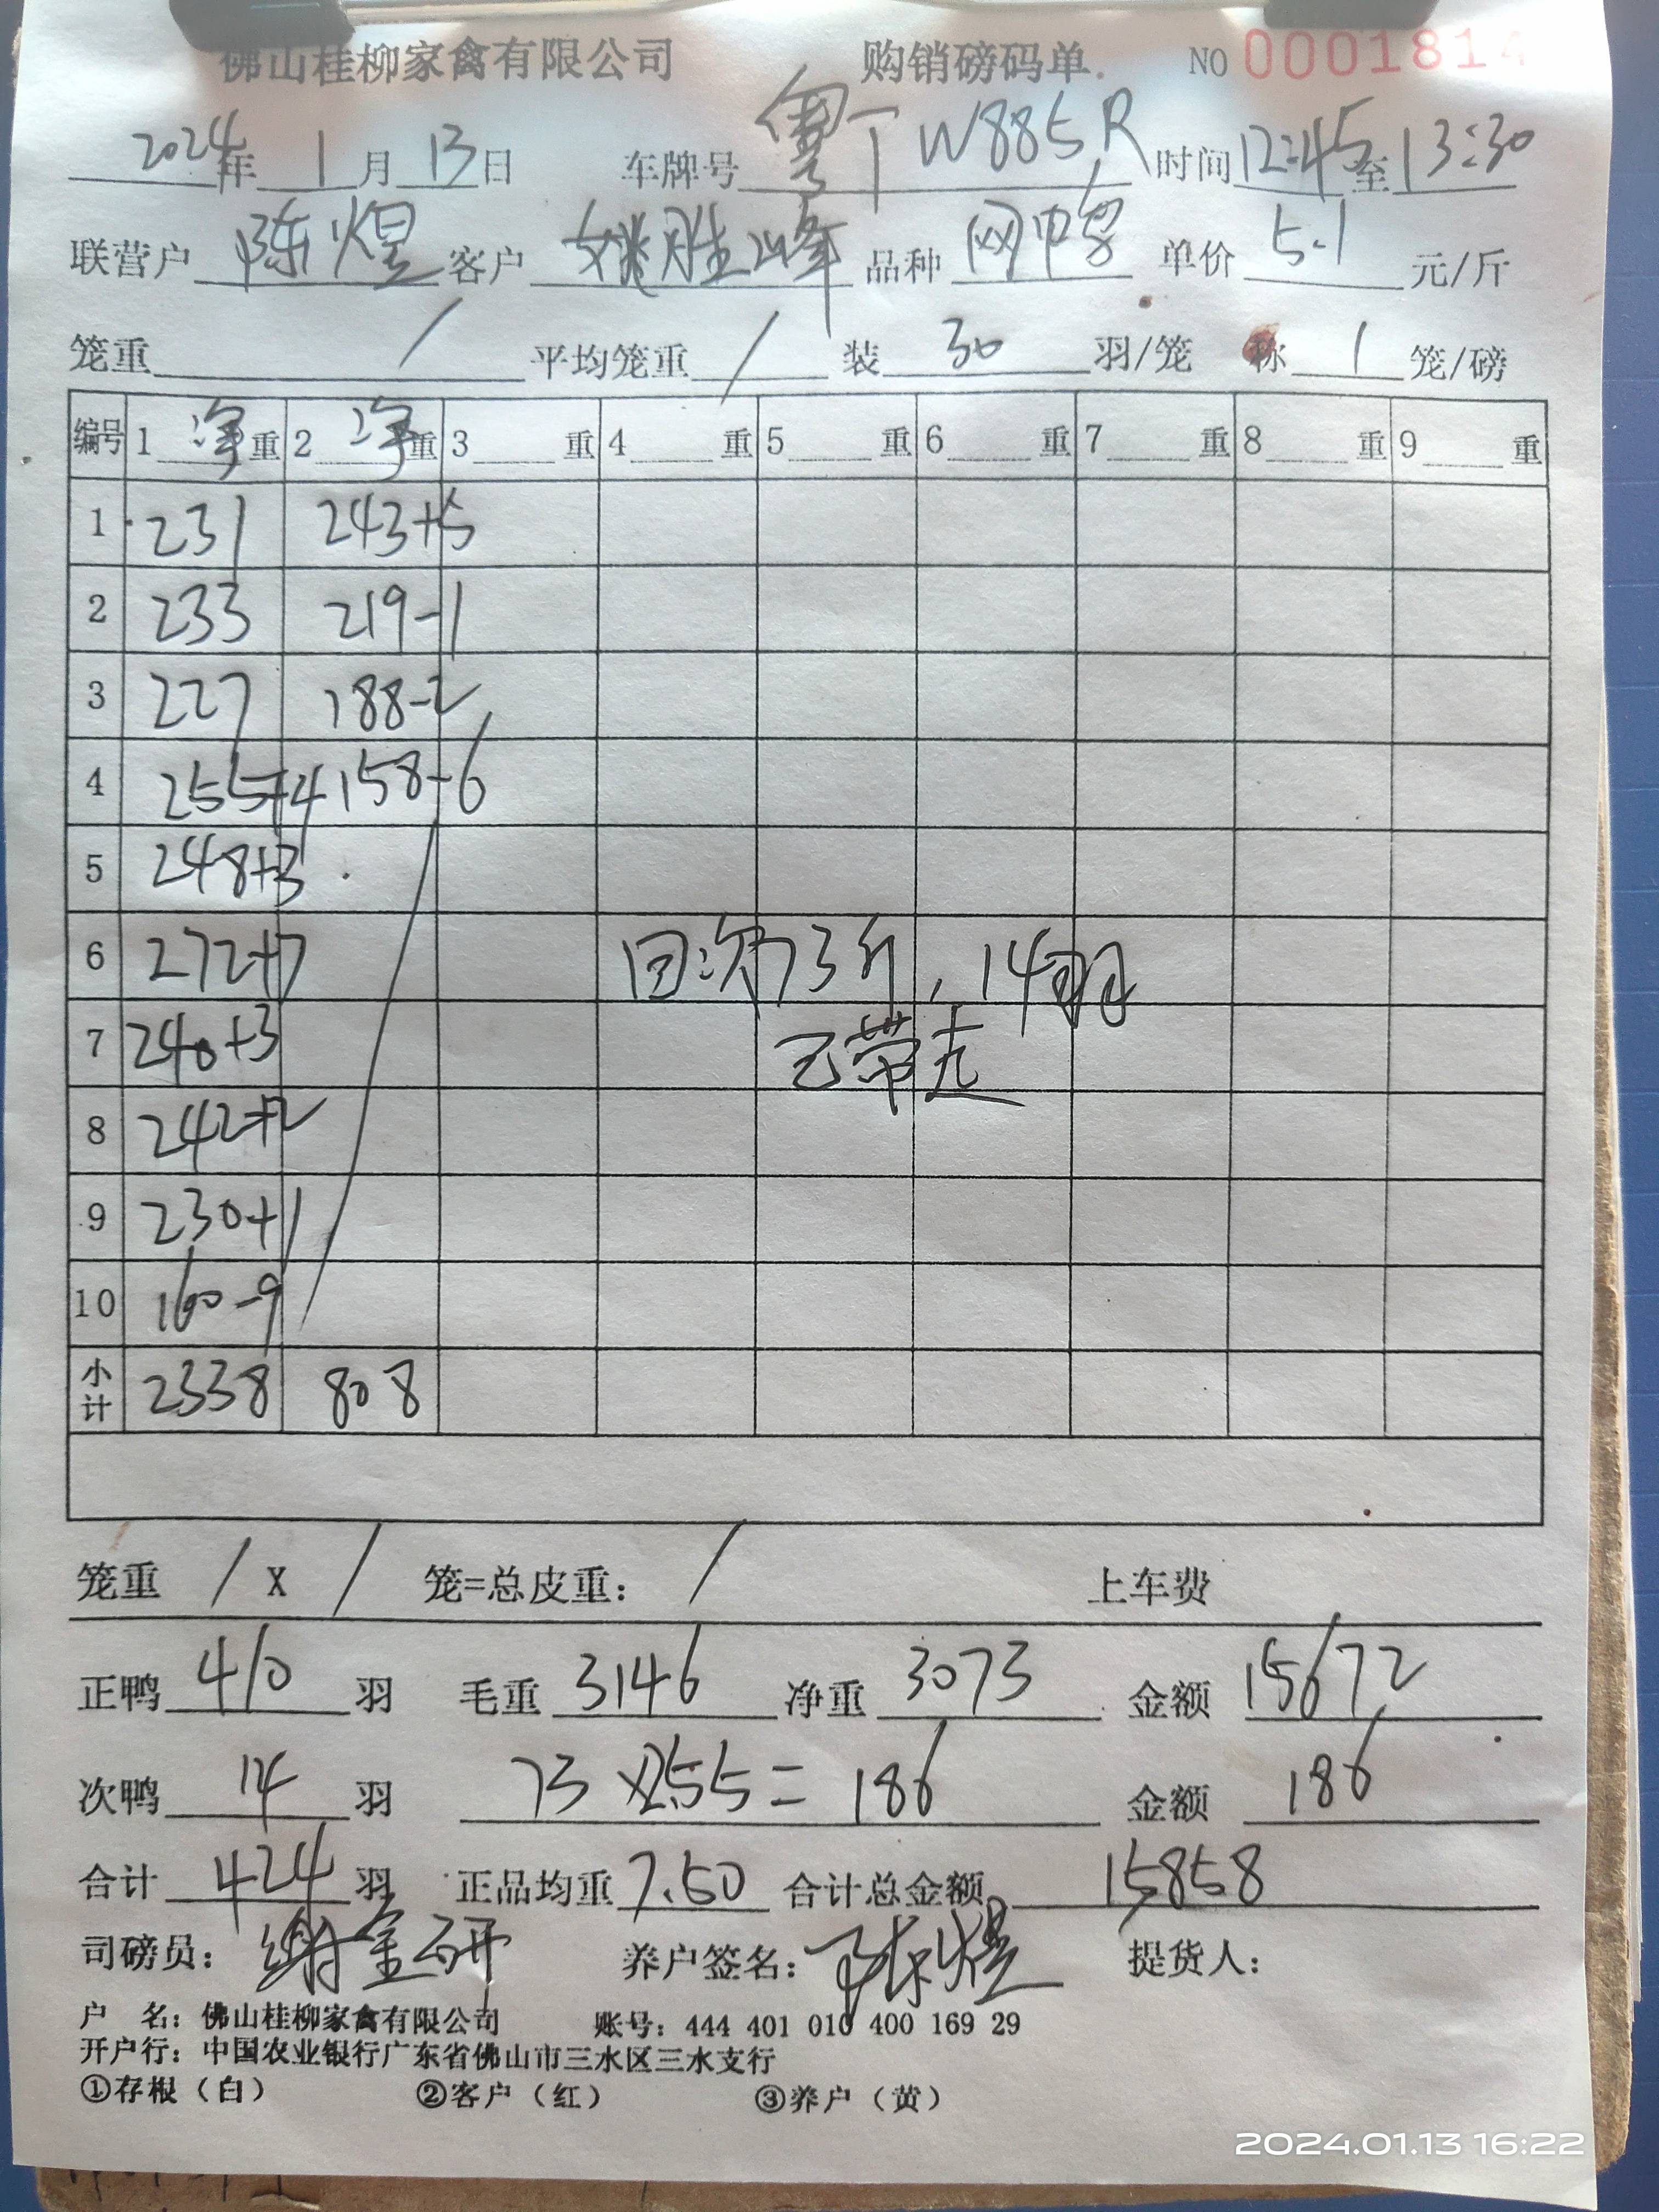 佛山桂柳家禽有限公司 购销磅码单 NO 0001814
2024年 1月 13日 车牌号 粤TW885R 时间 12:45 至 13:30
联营户 陈煜 客户 姚胜峰 品种 网中鸭 单价 5.1 元/斤
笼重 / 平均笼重 / 装 30 羽/笼 称 1 笼/磅
编号 1 净重 2 净重 3 重 4 重 5 重 6 重 7 重 8 重 9 重
1 231 243+5
2 233 219-1
3 227 188-2
4 255+4 158-6
5 248+3
6 272+7 回次73斤,14羽
7 240+3 已带走
8 242+2
9 230+1
10 160-9
小计 2338 808
笼重 / X / 笼=总皮重: / 上车费
正鸭 410 羽 毛重 3146 净重 3073 金额 15672
次鸭 14 羽 73 X2.55= 186 金额 186
合计 424 羽 正品均重 7.50 合计总金额 15858
司磅员: 谢金研 养户签名: 陈煜 提货人:
户 名: 佛山桂柳家禽有限公司 账号: 444 401 010 400 169 29
开户行: 中国农业银行广东省佛山市三水区三水支行
①存根(白) ②客户(红) ③养户(黄)
2024.01.13 16:22